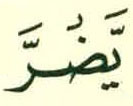 يَّضُرَّ